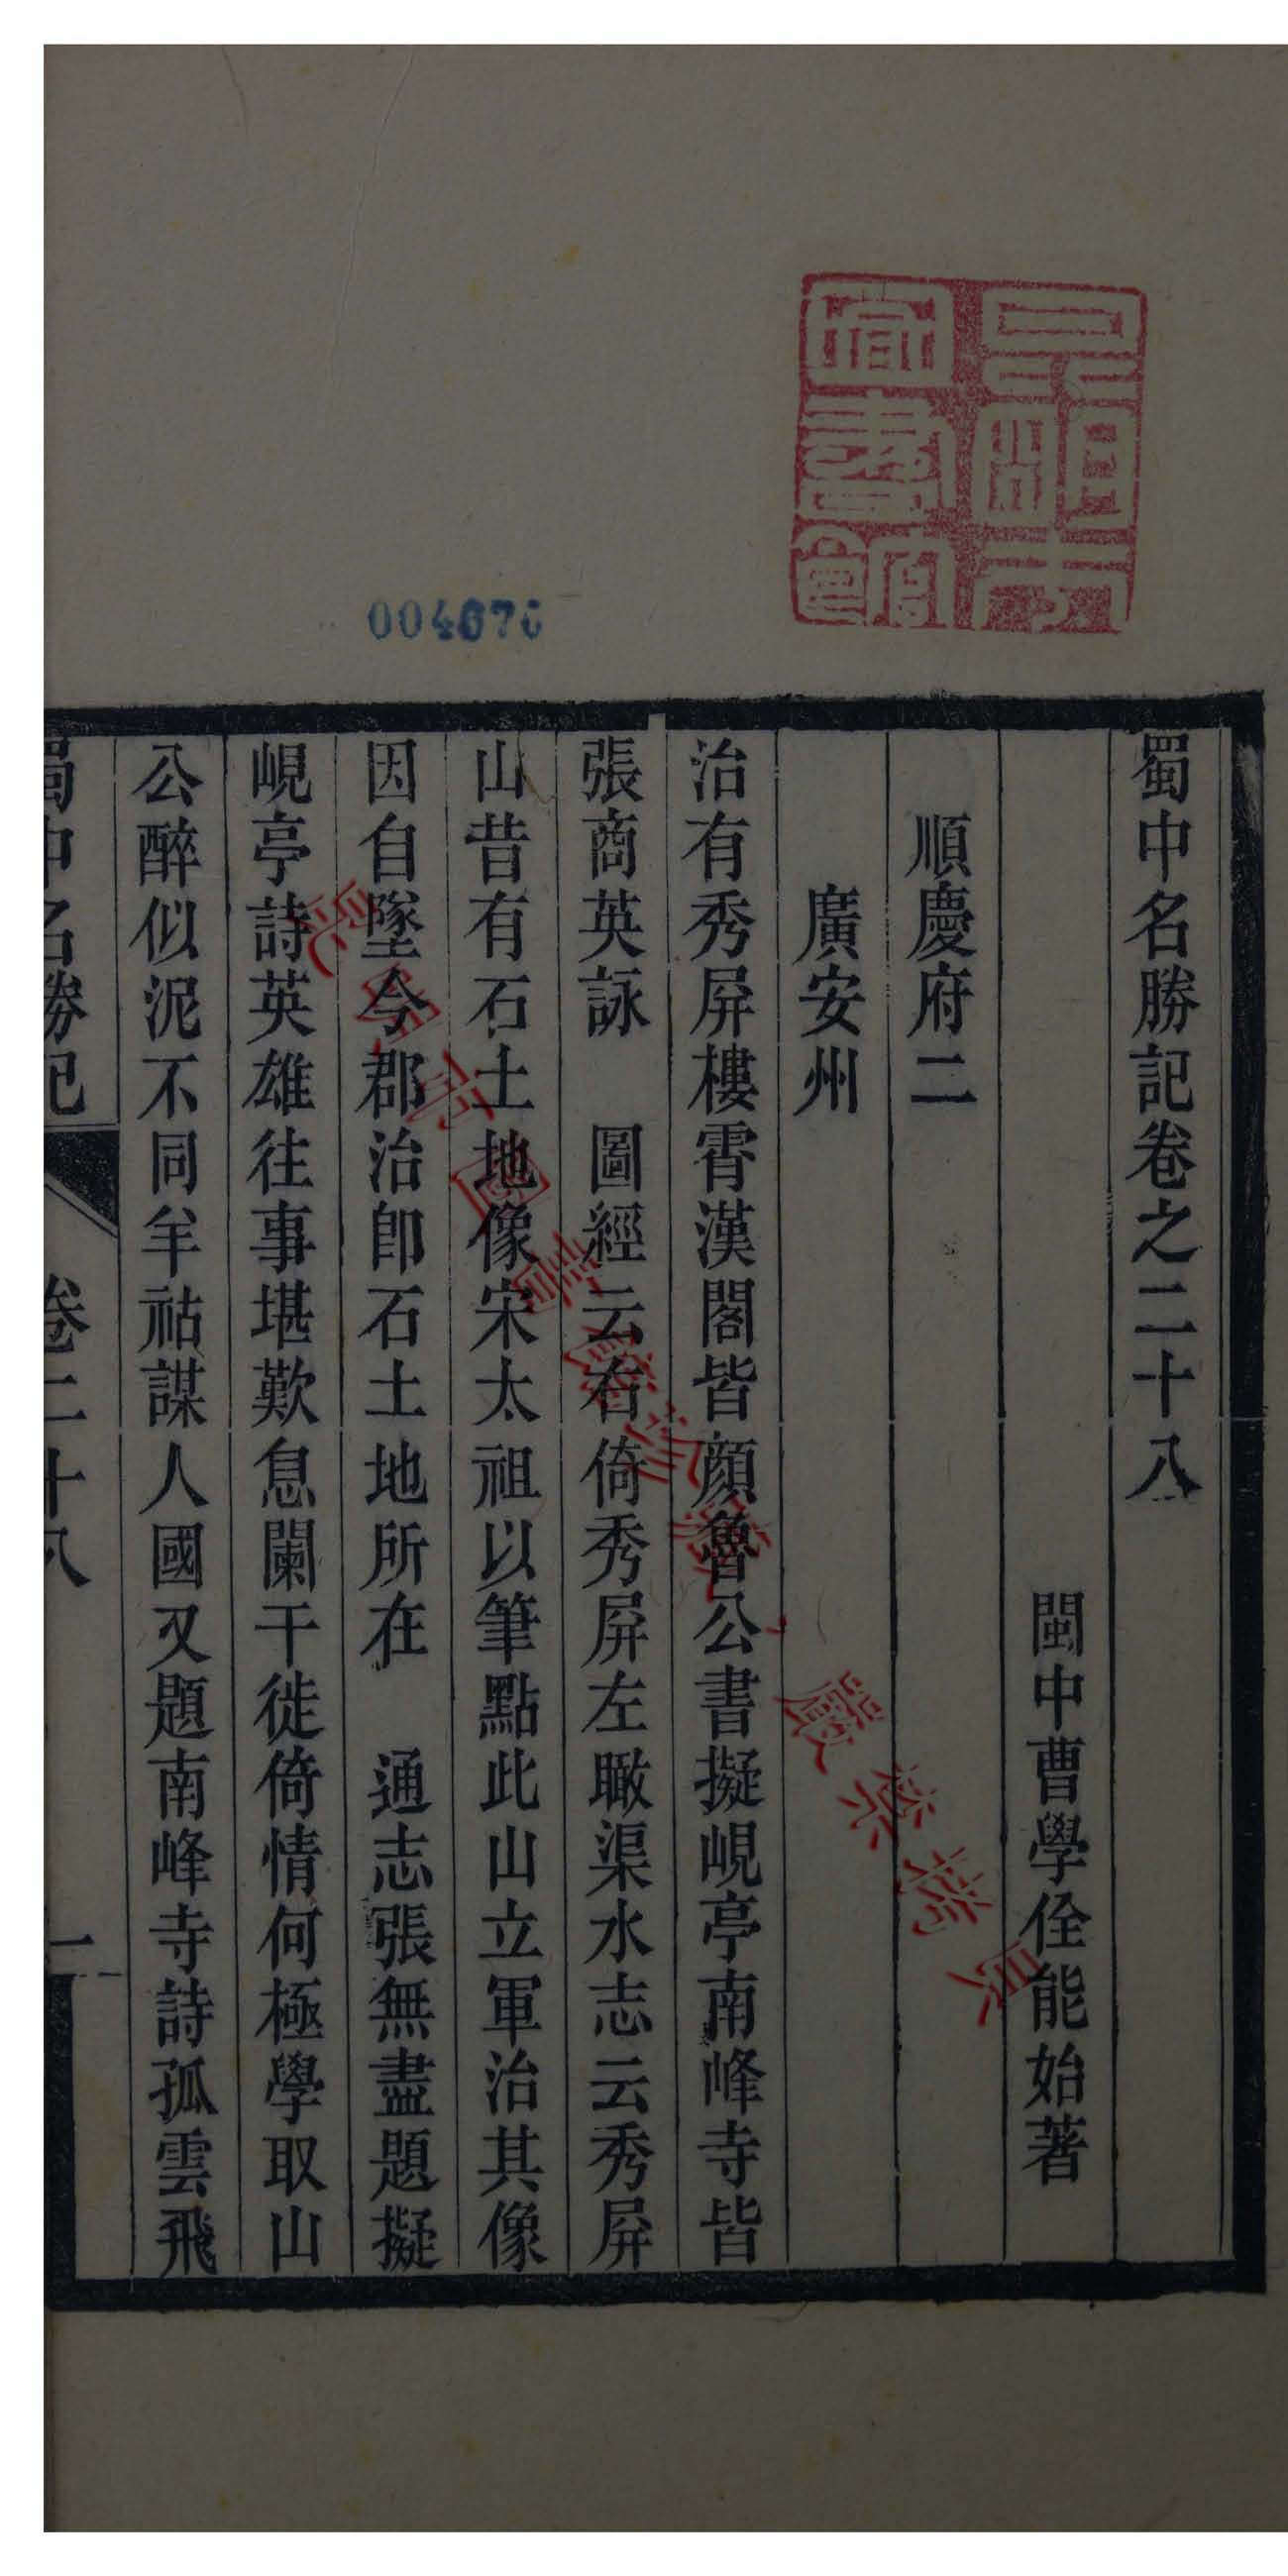 蜀中名勝記卷之二十八
閩中曹學佺能始著
順慶府二
廣安州
治有秀屏樓霄漢閣皆顔魯公書擬峴亭南峰寺皆
張商英詠　圖經云右倚秀屏左瞰渠水志云秀屏
山昔有石土地像宋太祖以筆點此山立軍治其像
因自墜今郡治卽石土地所在　通志張無盡題擬
峴亭詩英雄往事堪歎息闌干徙倚情何極學取山
公醉似泥不同羊祜謀人國又題南峰寺詩孤雲飛
蜀中名勝記　卷二十八　一
昆明市圖書館
00467
昆明市圖書館珍藏，嚴禁拷貝